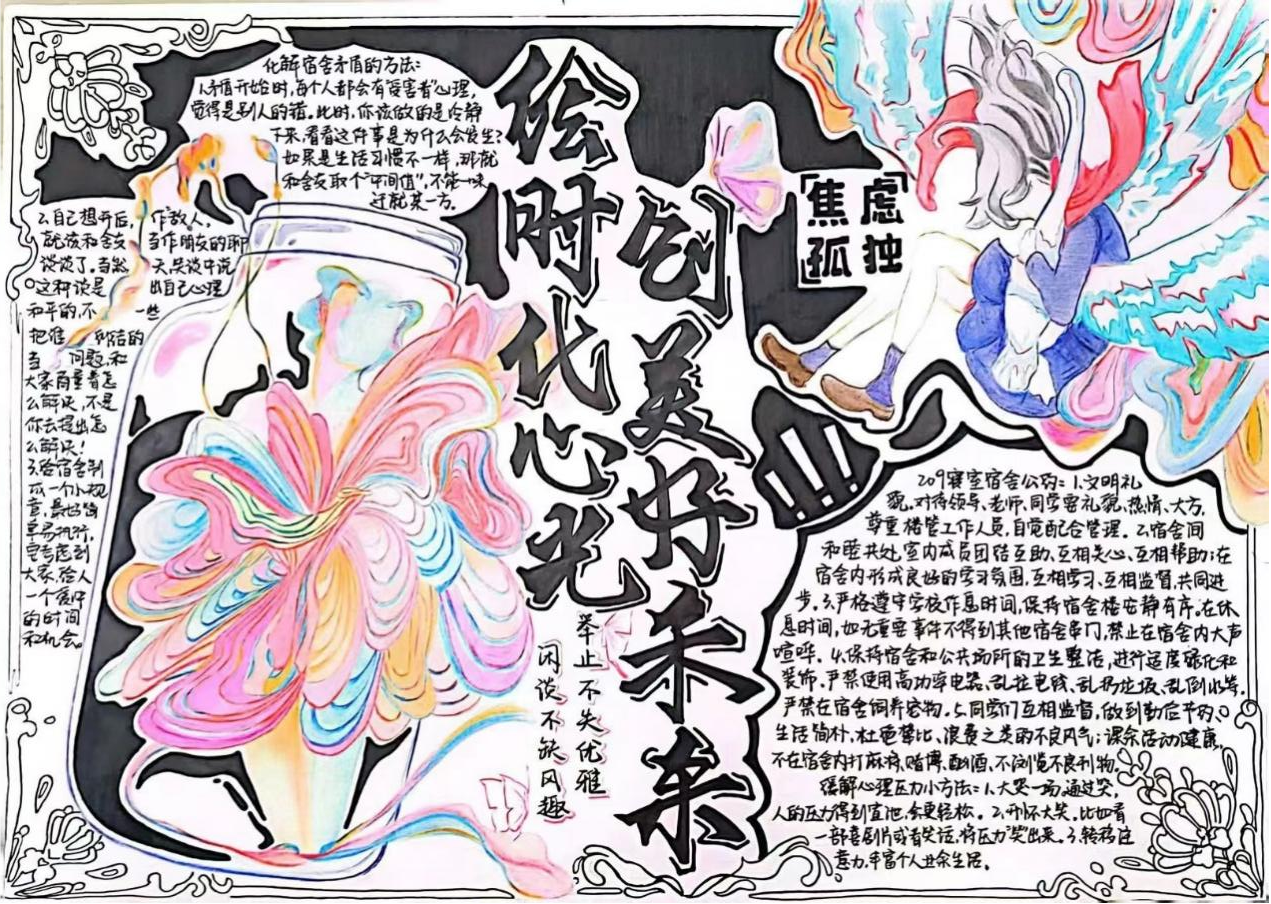 化解宿舍矛盾的方法:
1.矛盾开始时,每个人都会有"受害者"心理,
觉得是别人的错。此时,你该做的是冷静
下来,看看这件事是为什么会发生?
如果是生活习惯不一样,那就
和舍友取个"中间值",不能一味
迁就某一方。
2.自己想开后,
就该和舍友
谈谈了。当然
这种谈是
和平的,不
把谁
当
作敌人,
当作朋友的聊
天,笑谈中说
出自己心理
一些
所结的
问题,和
大家商量看怎
么解决,不是
你去提出怎
么解决!
3.给宿舍制
定一个小规
章,最好简
单易执行,
要考虑到
大家,给人
一个缓冲
的时间
和机会。
绘时代心光
创美好未来
举止不失优雅
闲谈不缺风趣
焦虑
孤独
!!!
209寝室宿舍公约:1.文明礼
貌,对待领导、老师、同学要礼貌、热情、大方,
尊重楼管工作人员,自觉配合管理。2.宿舍间
和睦共处,室内成员团结互助、互相关心、互相帮助;在
宿舍内形成良好的学习氛围,互相学习、互相监督,共同进
步。3.严格遵守学校作息时间,保持宿舍楼安静有序。在休
息时间,如无重要事件不得到其他宿舍串门,禁止在宿舍内大声
喧哗。4.保持宿舍和公共场所的卫生整洁,进行适度绿化和
装饰。严禁使用高功率电器、乱拉电线、乱扔垃圾、乱倒水等。
严禁在宿舍饲养宠物。5.同学们互相监督,做到勤俭节约、
生活简朴,杜绝攀比、浪费之类的不良风气;课余活动健康,
不在宿舍内打麻将、赌博、酗酒、不浏览不良刊物。
缓解心理压力小方法:1.大笑一场,通过笑,
人的压力得到宣泄,会更轻松。2.开怀大笑。比如看
一部喜剧片或者笑话,将压力"笑出来。3.转移注
意力,丰富个人业余生活。